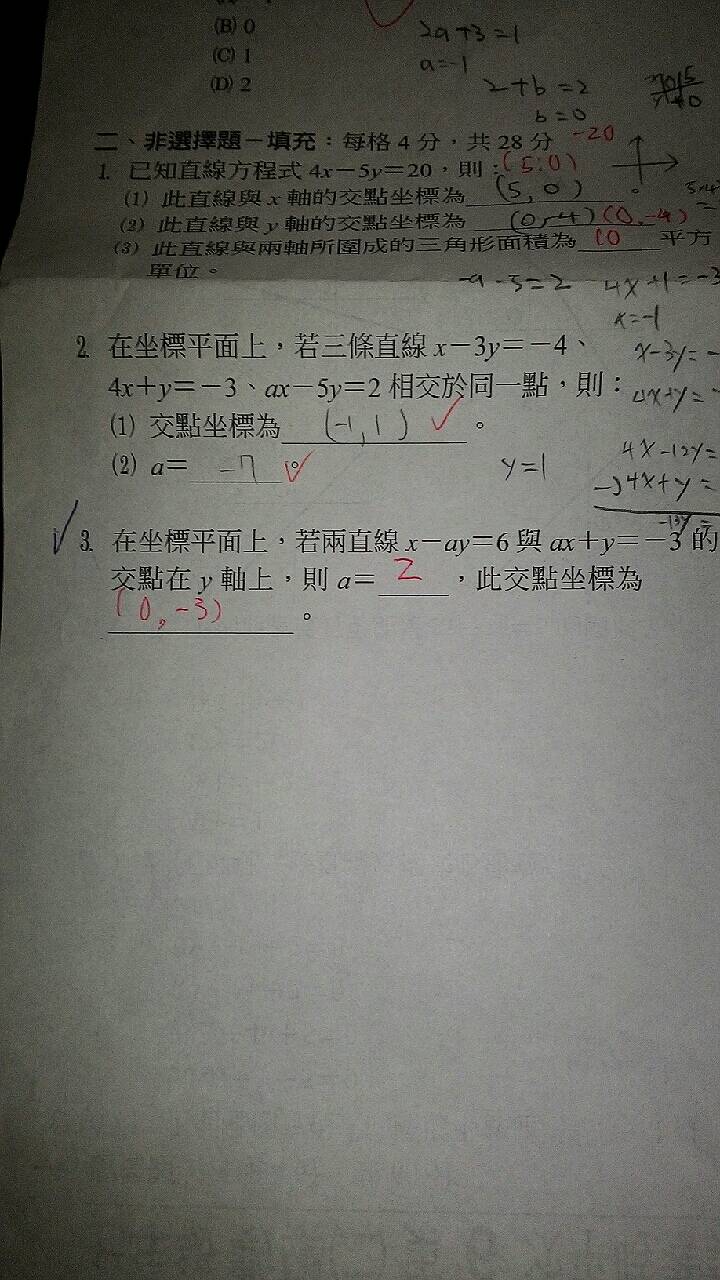 (B) 0
(C) 1
(D) 2
2a+3=1
a=-1
2+b=2
b=0
二、非選擇題-填充：每格4分，共28分 -20
1. 已知直線方程式4x-5y=20，則：(5,0)
(1) 此直線與x軸的交點坐標為 (5, 0)
(2) 此直線與y軸的交點坐標為 (0,-4) (0,-4)
(3) 此直線與兩軸所圍成的三角形面積為 10 平方
單位。
-a-5=2
4x+1=-3
x=-1
2. 在坐標平面上，若三條直線x-3y=-4、
4x+y=-3、ax-5y=2相交於同一點，則：
x-3y=-
4x+y=-
(1) 交點坐標為 (-1,1) ✓。
(2) a= -7。✓
y=1
4x-12y=
-)4x+y=
-13y=
✓ 3. 在坐標平面上，若兩直線x-ay=6與ax+y=-3的
交點在y軸上，則a= 2，此交點坐標為
(0,-3)。